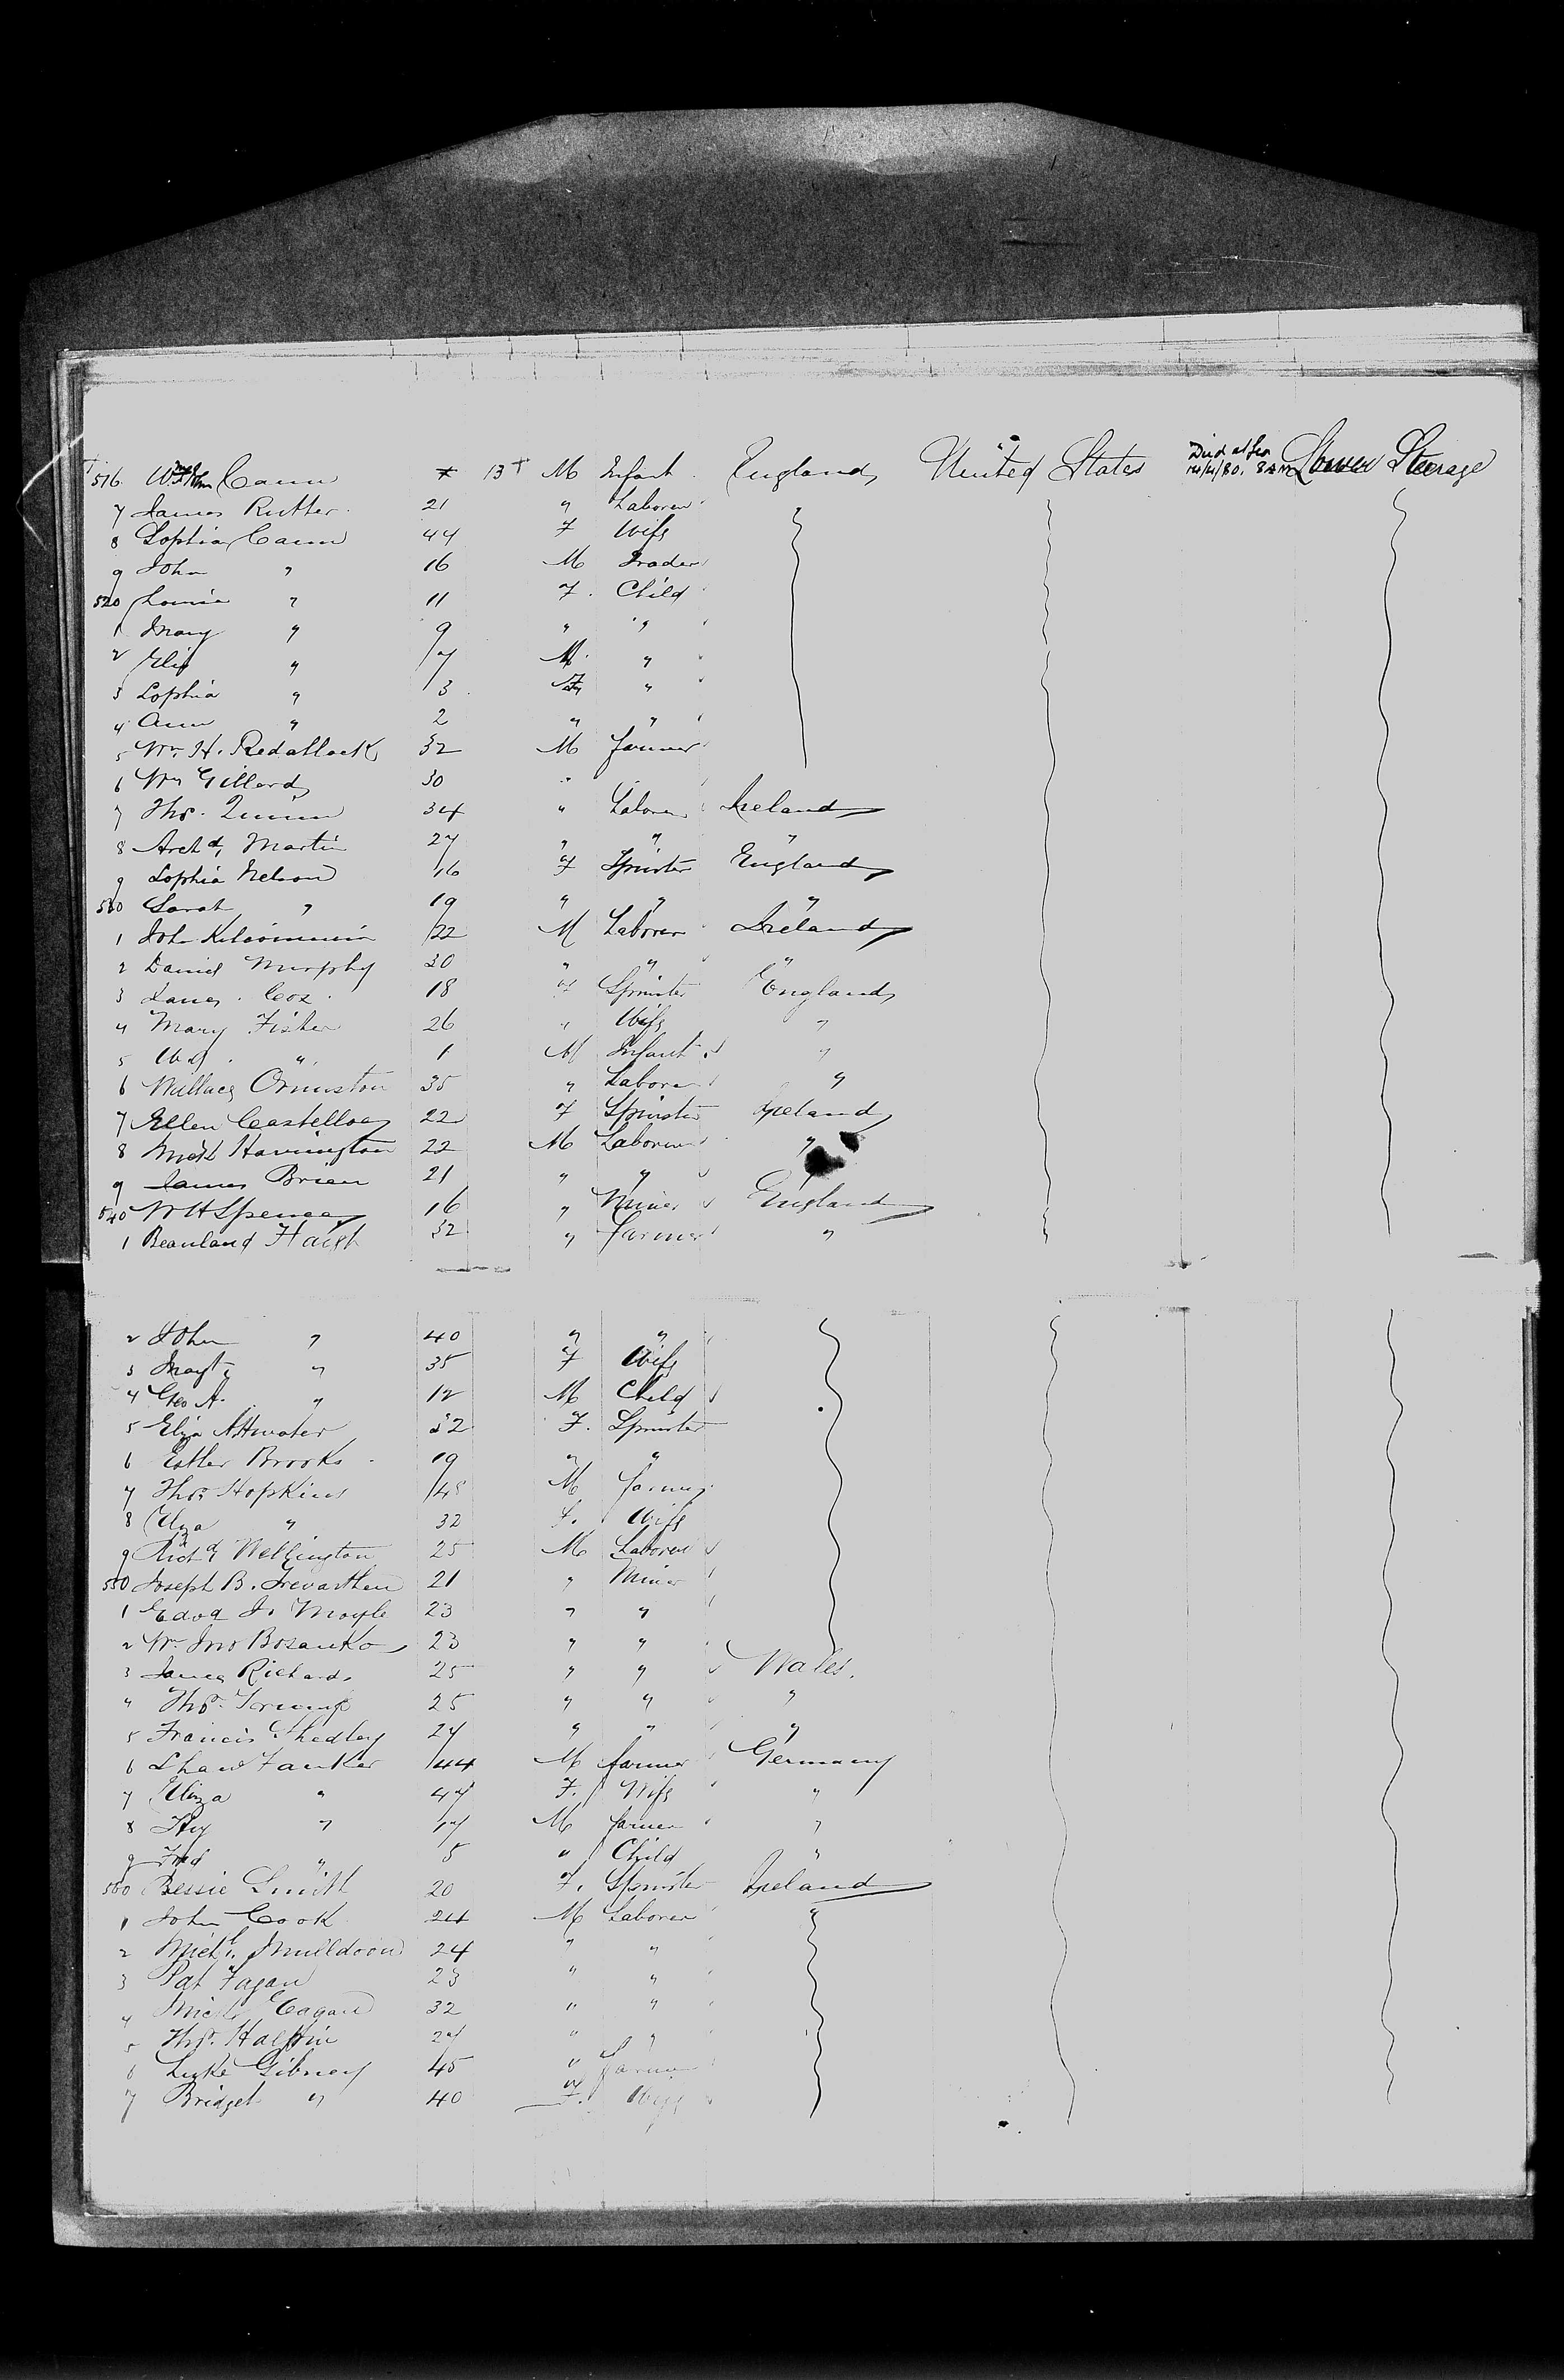 516 Cann 13 M Infant England United States Died at Sea 14/4/80, 8 AM Lower Steerage
7 James Rutter 21 " Laborer
8 Sophia Cann 44 F Wife
9 John " 16 M Trader
520 Louisa " 11 F. Child
1 Mary " 9 " "
2 " 7 M "
3 Sophia " 3 F "
4 Ann " 2 " "
5 Wm. H. 32 M farmer
6 Wm Gillard 30 "
7 Thos. Quinn 34 " Laborer Ireland
8 Archd. Martin 27 " " "
9 Sophia Nelson 16 F Spinster England
530 Sarah " 19 " " "
1 John 22 M Laborer Ireland
2 Daniel Murphy 30 " " "
3 Cox 18 F Spinster England
4 Mary Fisher 26 " Wife "
5 " 1 M Infant "
6 Wallace Ormiston 35 " Laborer "
7 Ellen Castelloe 22 F Spinster Ireland
8 Harrington 22 M Laborer "
9 James Brien 21 " "
540 W H Spence 16 " Miner England
1 Beanland Haigh 32 " farmer "
2 John " 40 " "
3 Margt. " 35 F Wife
4 Geo A. " 12 M Child
5 Eliza Attwater 32 F. Spinster
6 Esther Brooks 19 " "
7 Thos. Hopkins M farmer
8 Eliza " 32 F. Wife
9 Richd. Wellington 25 M Laborer
550 Joseph B. Trevarthen 21 " Miner
1 Edwd J. Moyle 23 " "
2 Wm. Jno Bosanko 23 " "
3 James Richards 25 " " Wales.
4 Thos. 25 " " "
5 Francis 27 " " "
6 44 M farmer Germany
7 Eliza " 47 F. Wife "
8 Hy " 17 M farmer "
9 Fred " 5 " Child "
560 Bessie Smith 20 F. Spinster Ireland
1 John Cook 24 M Laborer "
2 Michl. Mulldoon 24 " "
3 Pat Fagan 23 " "
4 Michl. Eagan 32 " "
5 Thos. Halpin 27 " "
6 Luke Gibney 45 " farmer
7 Bridget " 40 F. Wife